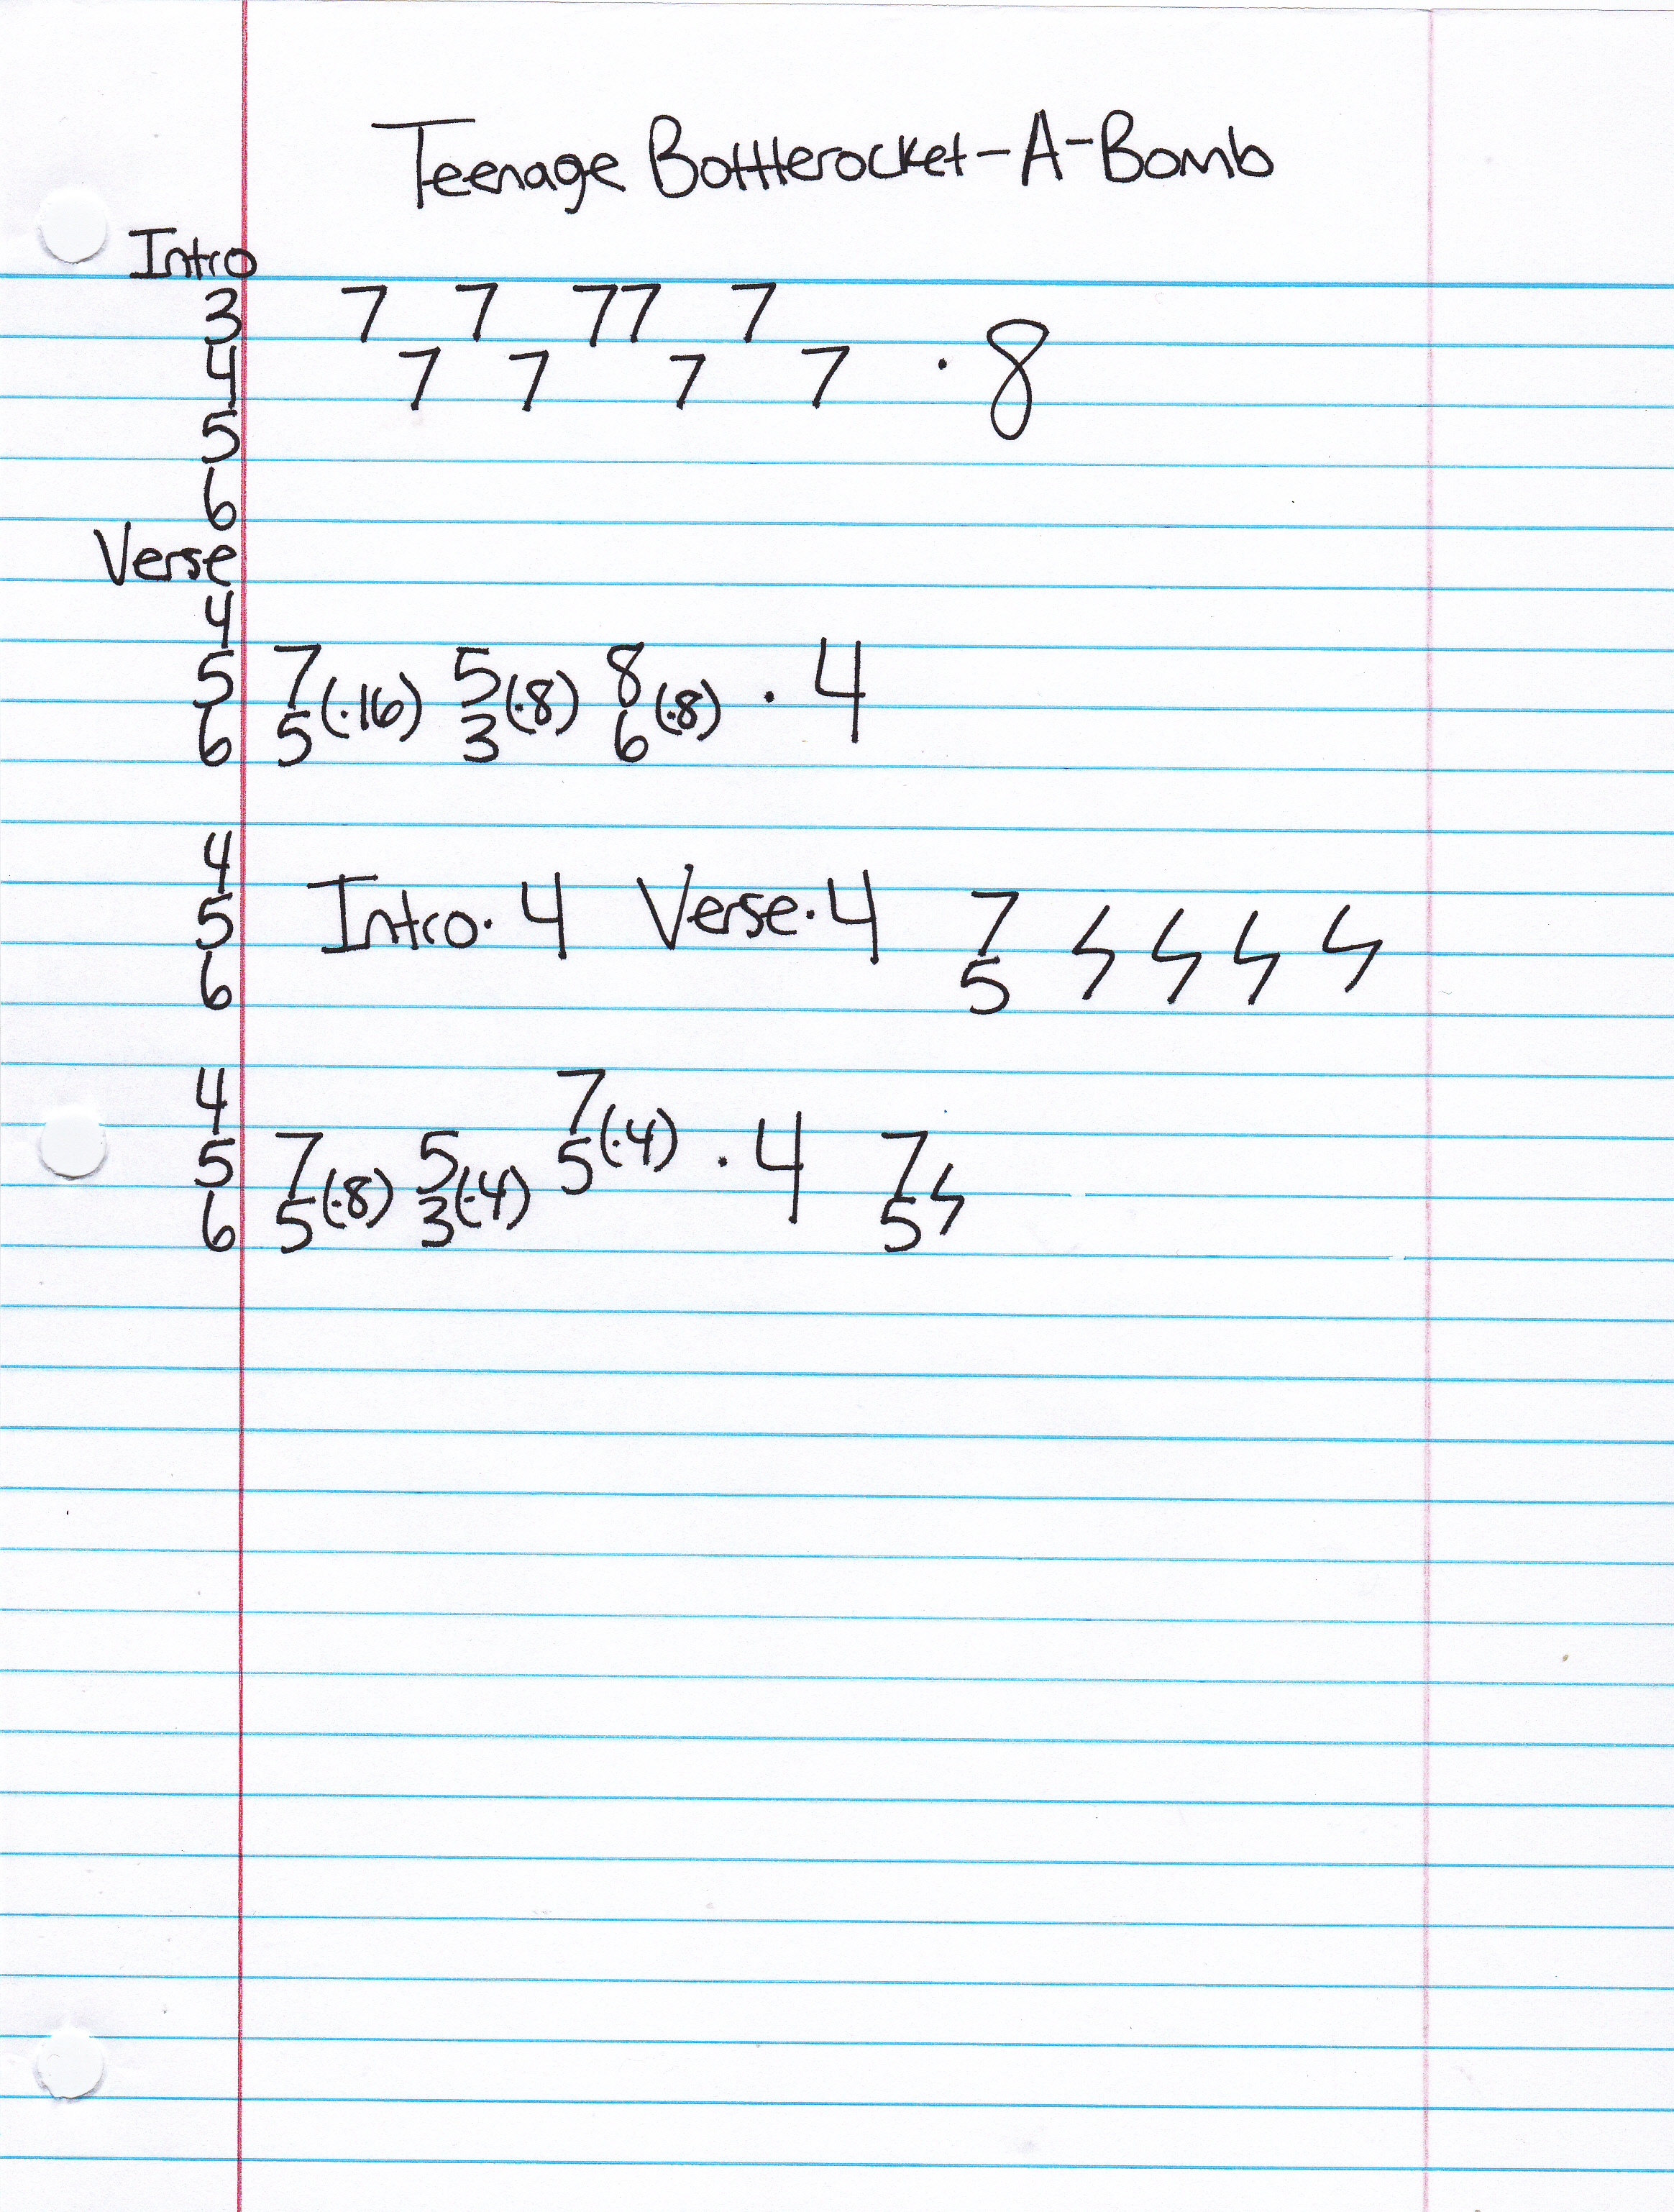 Teenage Bottlerocket-A-Bomb
Intro
3 7 7 77 7
4 7 7 7 7 · 8
5
6
Verse
4
5 7(·16) 5(·8) 8(·8) · 4
6 5 3 6
4
5 Intro·4 Verse·4 7 ϟ ϟ ϟ ϟ
6 5
4 7(·4)
5 7(·8) 5(·4) 5 · 4 7ϟ
6 5 3 5